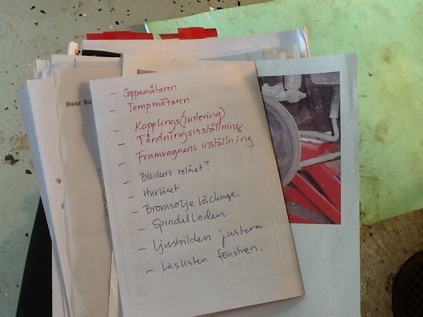 Rear Su
- Soppamätaren
Tempmätaren
- Kopplings(justering)
- Tändningsinställning
- Framvagnens inställning
- Blinkers reläet?
- Huvlåset
- Bromsolje läckage
- Spindelleden
- Ljusbilden justera
- Låslisten fönstren.